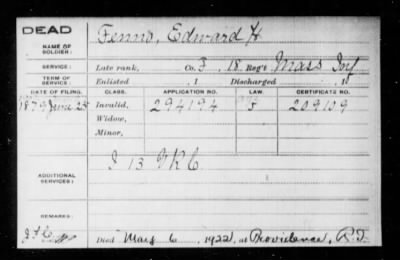 DEAD
NAME OF SOLDIER: Fenno, Edward H
SERVICE: Late rank, Co. F, 18 Reg't Mass Inf
TERM OF SERVICE: Enlisted , 1 Discharged , 1
DATE OF FILING. CLASS. APPLICATION NO. LAW. CERTIFICATE NO.
1879 June 25 Invalid, 294194 F 209109
Widow,
Minor,
ADDITIONAL SERVICES: I 13 VRC
REMARKS:
Died May 6, 1922, at Providence, R.I.